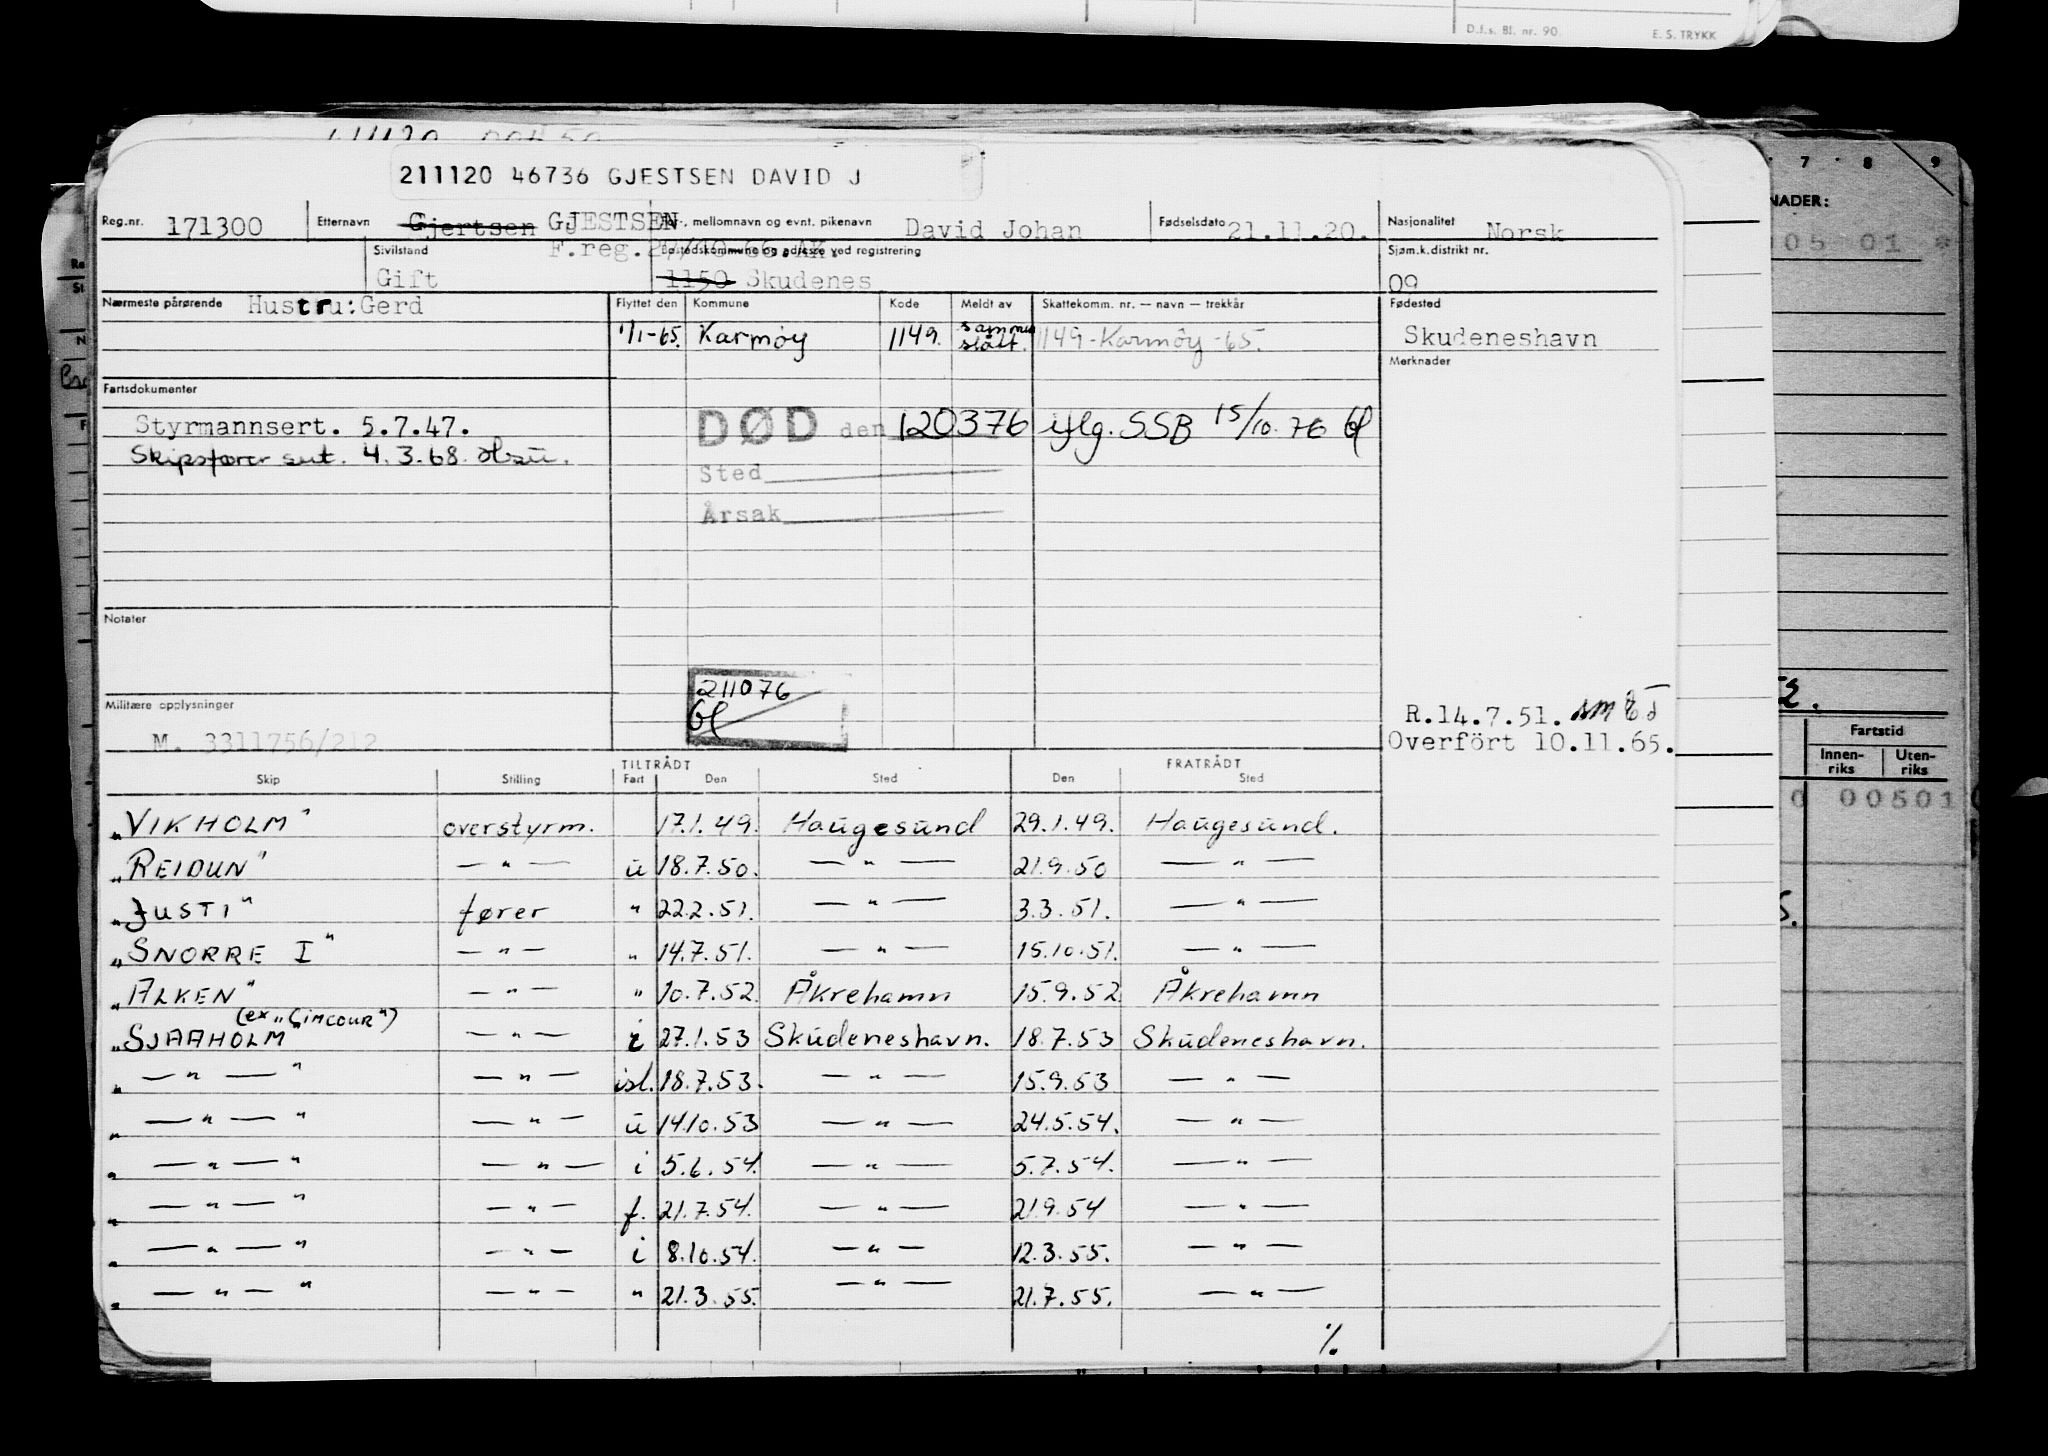 D.f.s. Bl. nr. 90. E. S. TRYKK
211120 46736 GJESTSEN DAVID J
Reg.nr. 171300 Etternavn Gjertsen GJESTSEN For-, mellomnavn og evnt. pikenavn David Johan Fødselsdato 21.11.20. Nasjonalitet Norsk
Sivilstand Gift F.reg. Bostedskommune og adresse ved registrering 1150 Skudenes Sjøm.k.distrikt nr. 09
Nærmeste pårørende Hustru: Gerd Flyttet den Kommune Kode Meldt av Skattekomm. nr. — navn — trekkår Fødested
1/1-65. Karmøy 1149. sammenslått. 1149-Karmøy-65. Skudeneshavn
Merknader
Fartsdokumenter
Styrmannsert. 5.7.47. DØD den 120376 iflg. SSB 15/10.76 Gl
Skipsfører sert. 4.3.68.
Sted
Årsak
Notater
211076
Gl
Militære opplysninger
M. 3311756/212
R.14.7.51.
Overfört 10.11.65.
TILTRÅDT FRATRÅDT
Skip Stilling Fart Den Sted Den Sted
„VIKHOLM" overstyrm. 17.1.49. Haugesund 29.1.49. Haugesund.
„REIDUN" — " — u 18.7.50. — " — 21.9.50 — " —
„JUSTI" fører " 22.2.51. — " — 3.3.51. — " —
„SNORRE I" — " — " 14.7.51. — " — 15.10.51. — " —
„ALKEN" — " — " 10.7.52. Åkrehamn 15.9.52 Åkrehamn
(ex „GIMCOUR")
„SJAAHOLM" — " — i 27.1.53 Skudeneshavn. 18.7.53 Skudeneshavn.
„ — " — " — " — isl. 18.7.53. — " — 15.9.53 — " —
„ — " — " — " — u 14.10.53 — " — 24.5.54. — " —
„ — " — " — " — i 5.6.54. — " — 5.7.54. — " —
„ — " — " — " — f. 21.7.54. — " — 21.9.54 — " —
„ — " — " — " — i 8.10.54. — " — 12.3.55. — " —
„ — " — " — " — " 21.3.55. — " — 21.7.55. — " —
%
7 8 9
NADER:
05 01 *
Fartstid
Innen-riks Uten-riks
0 00501